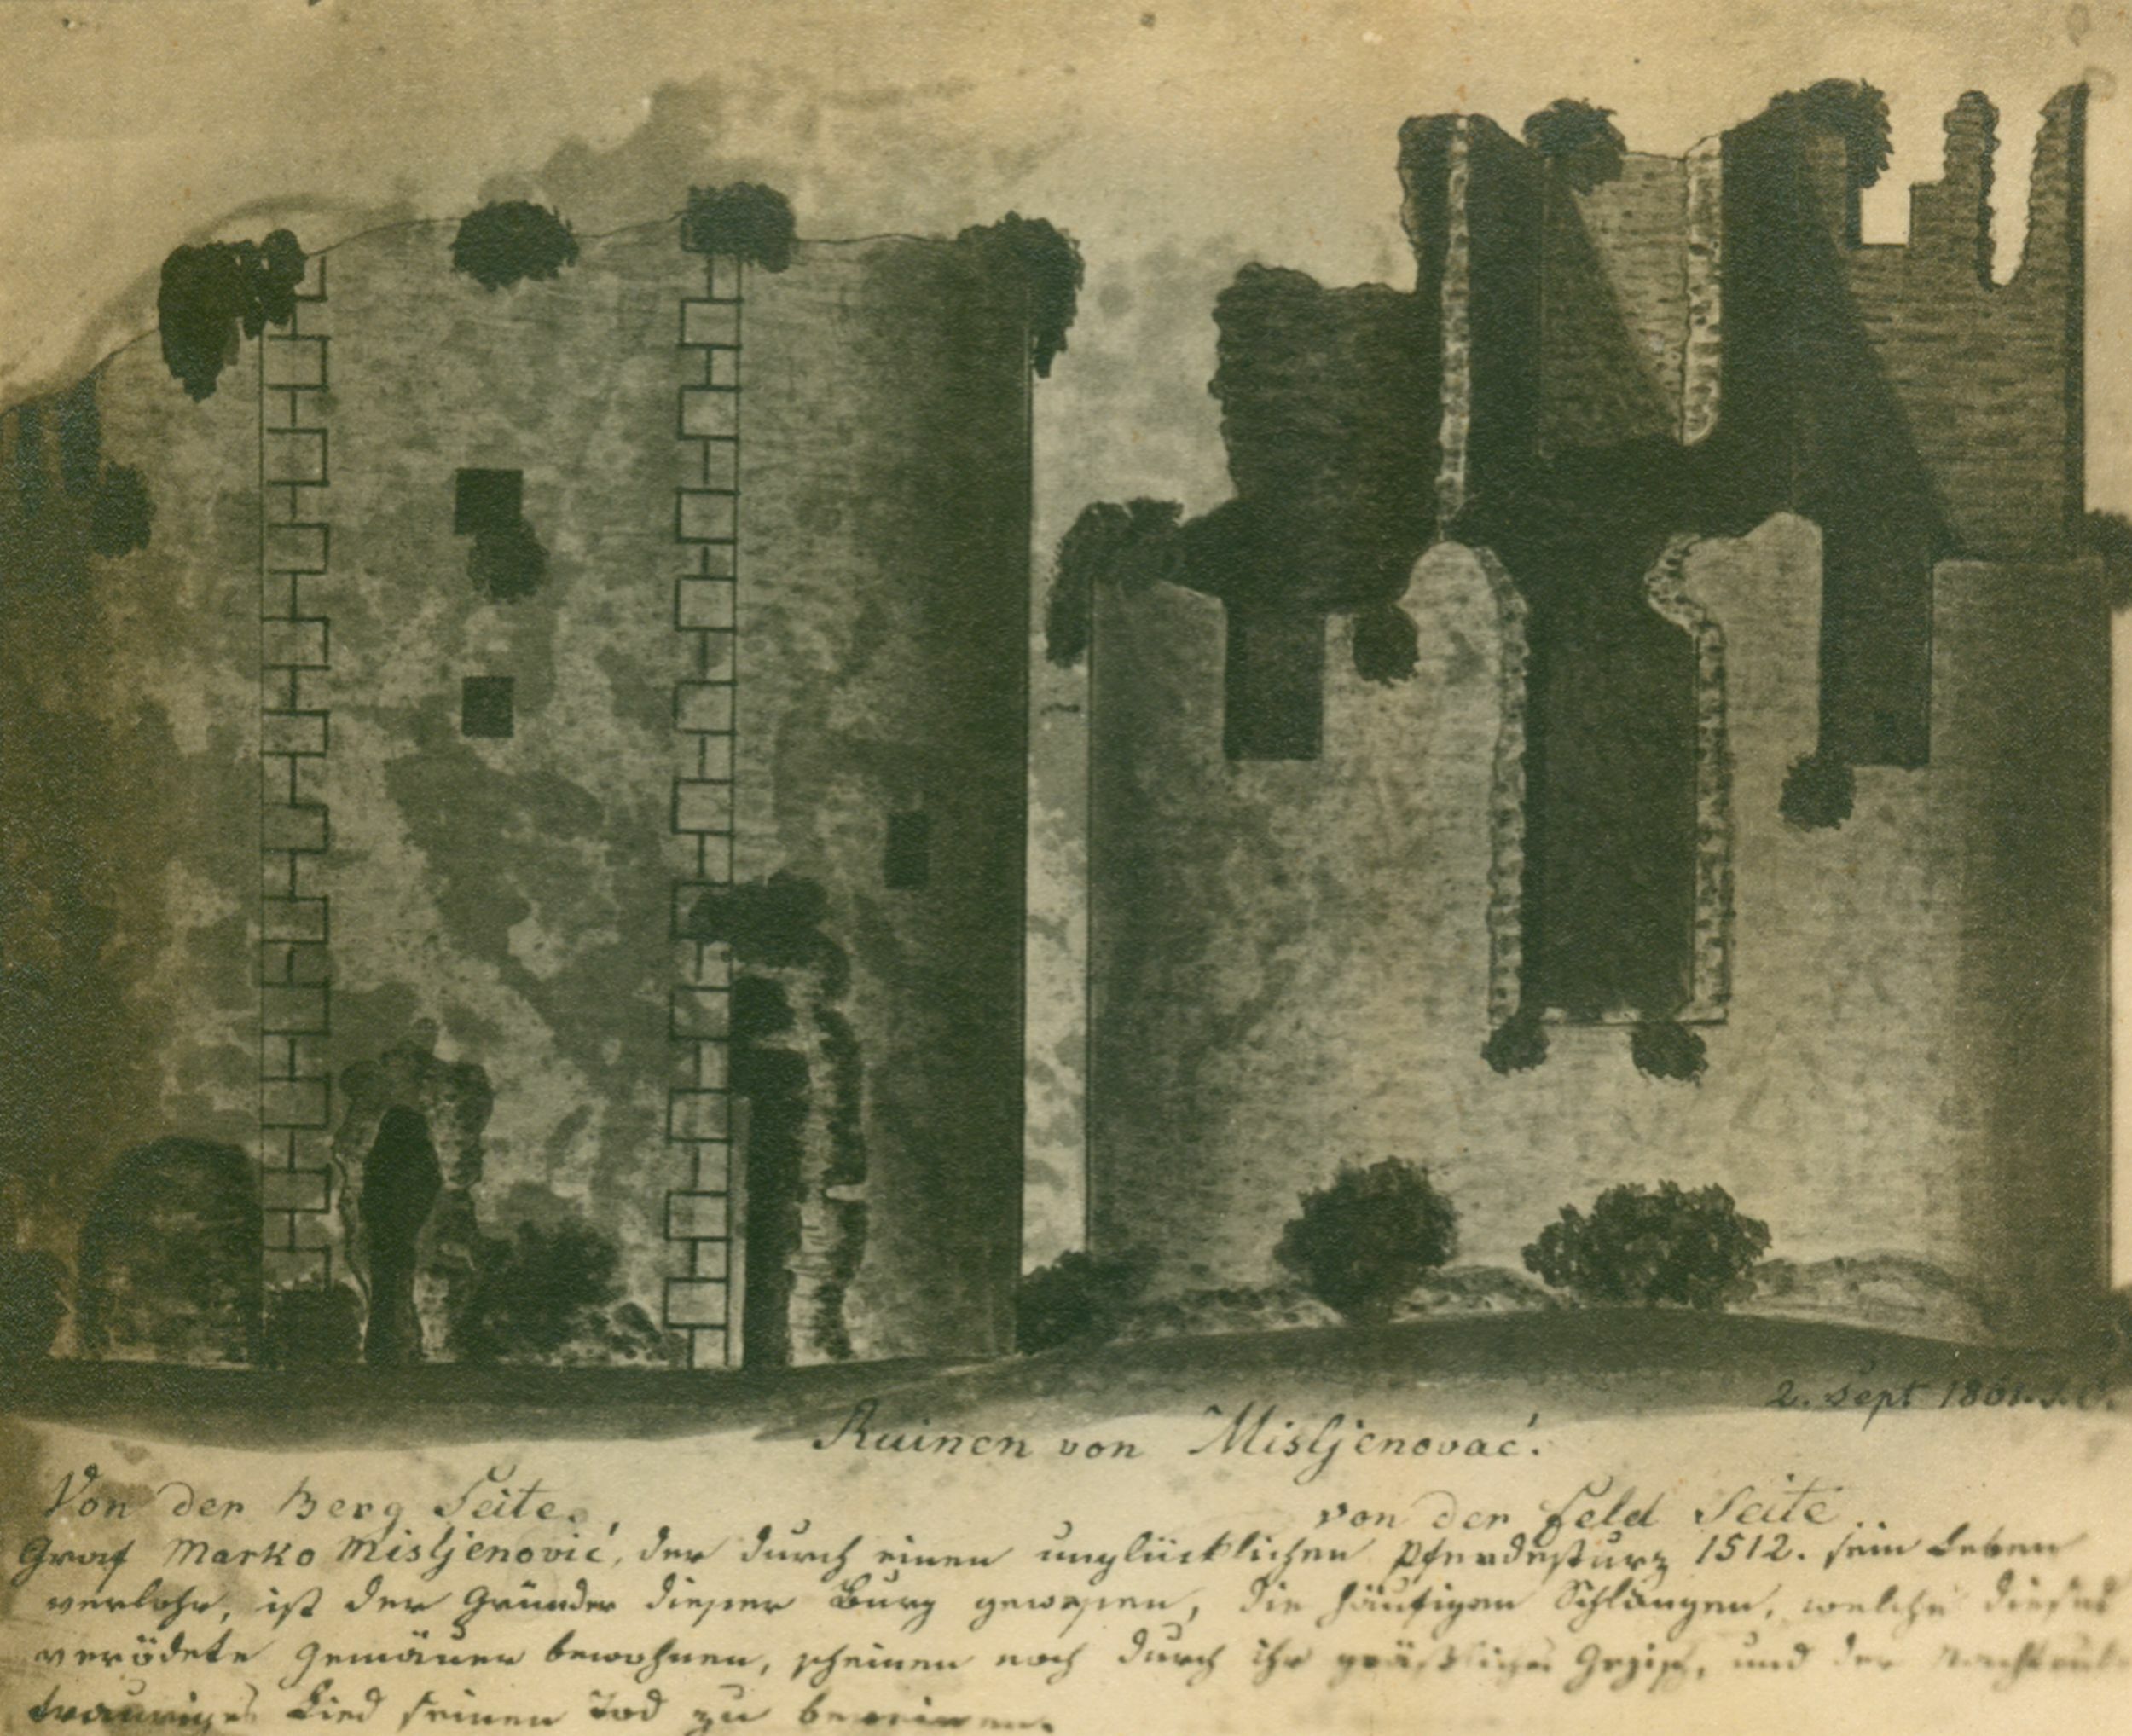 2. Sept 186
Ruinen von Misljenovac.
Von der Berg Seite.
von der Feld Seite
Graf Marko Misljenović, der durch einen unglücklichen Pferdesturz 1512. sein Leben
verlohr, ist der Gründer dieser Burg gewesen, die häufigen Schlangen, welche dieses
verödete Gemäuer bewohnen, scheinen noch durch ihr gräßliches Gezisch, und der
trauriges Lied seinen Tod zu beweinen.